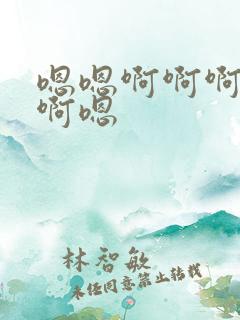 嗯嗯啊啊啊
啊嗯
林智敏
未经同意禁止转载